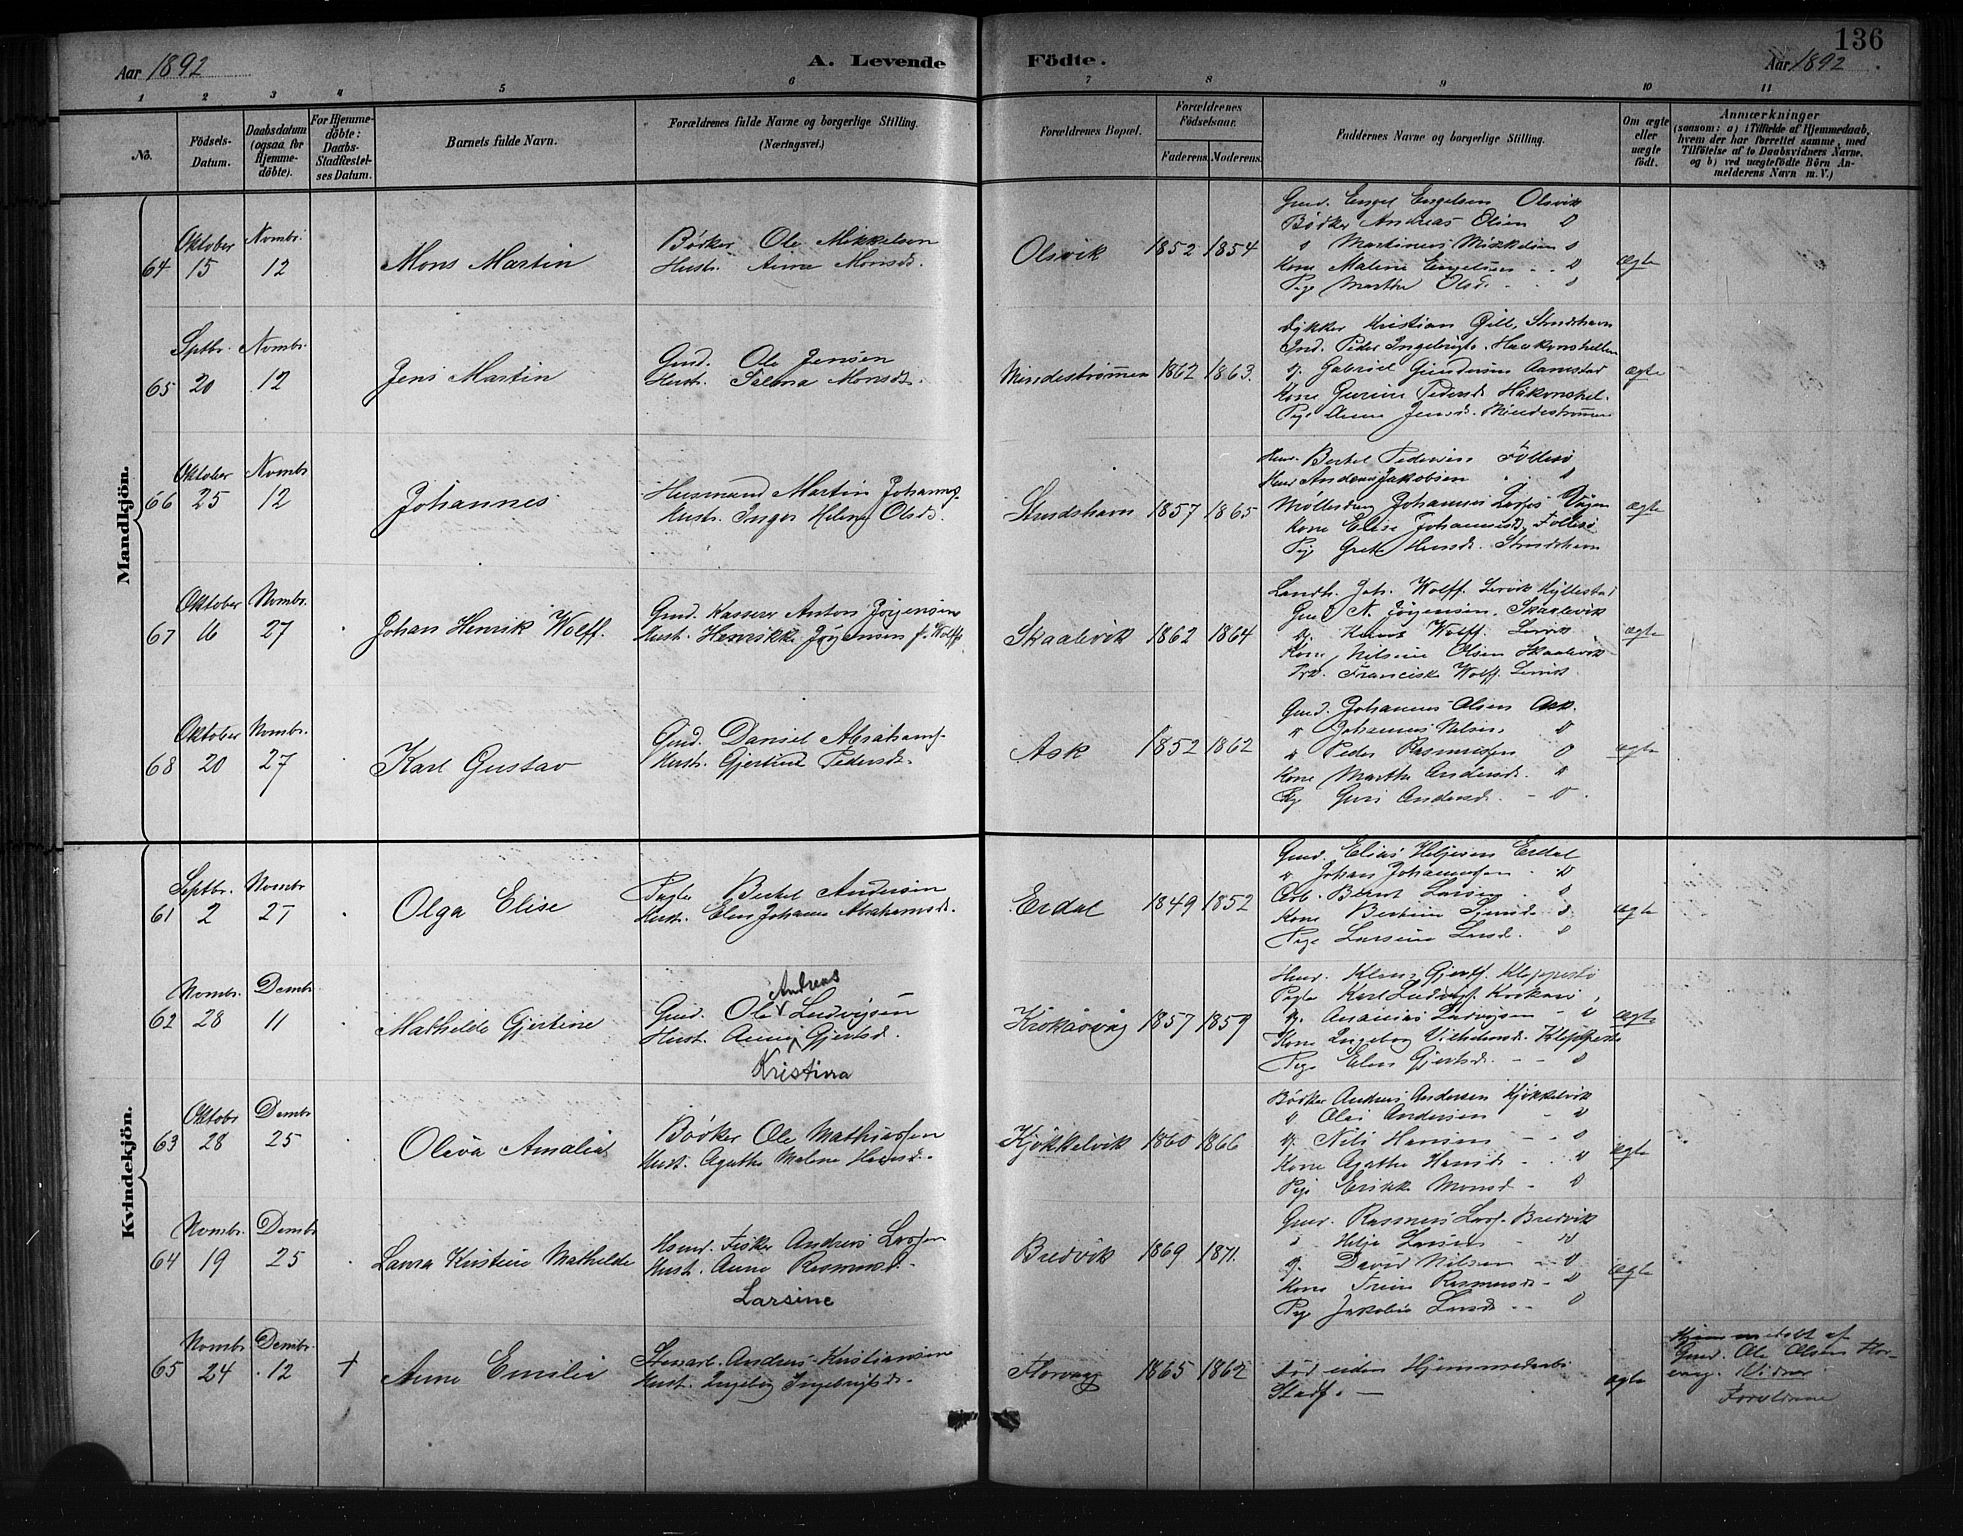 136
Aar 1892
A. Levende Födte.
Aar 1892.
1 2 3 4 5 6 7 8 9 10 11
No.
Födsels-
Datum.
Daabsdatum
(ogsaa for
Hjemme-
döbte).
For Hjemme-
döbte:
Daabs-
Stadfæstel-
ses Datum.
Barnets fulde Navn.
Forældrenes fulde Navne og borgerlige Stilling.
(Næringsvei.)
Forældrenes Bopæl.
Forældrenes
Födselsaar.
Faderens. Moderens.
Faddernes Navne og borgerlige Stilling.
Om ægte
eller
uægte
födt.
Anmærkninger
(saasom: a) i Tilfælde af Hjemmedaab,
hvem der har forrettet samme, med
Tilföielse af to Daabsvidners Navne,
og b) ved uægtefödte Börn An-
melderens Navn m. V.)
Mandkjön.
64
Oktober
15
Novmbr.
12
Mons Martin
Bödker Ole Mikkelsen
Hustr. Anna Monsd.
Olsvik
1852 1854
Gmd. Engel Engelsen Olsvik
Bödker Andreas Olsen
Martinus Mikkelsen
Kone Malene Engelsen
Pige Martha Olsd.
ægte
65
Septbr.
20
Novmbr.
12
Jens Martin
Gmd. Ole Jensen
Hustr. Monsd.
Mindeströmmen
1862 1863.
Kristian
Peder
Gabriel Gundersen
Kone Pedersd. Håkonshel.
Pige Anna Jensd. Mindeströmmen
ægte
66
Oktober
25
Novmbr
12
Johannes
Husmand Martin Johannes.
Hustr. Inger Helene Olsd.
Strudshavn
1857 1865
Bertel Pedersen Follesö
Anders Jakobsen
Johannes
Kone Elise Johannesd. Follesö
Pige Strudshavn
ægte
67
Oktober
16
Novmbr.
27
Johan Henrik Wolff.
Gmd. Kasserer Anton Jörgensen
Hust. Henrikke Jörgensen f. Wolff
Skaalevik
1862 1864
Landh. Joh. Wolff. Hyllestad
Gmd. N. Jörgensen. Skaalevik
Wolff.
Kone Nilsine Olsen Skaalevik
Franciska Wolff.
ægte
68
Oktober
20
Novmbr.
27
Karl Gustav
Gmd. Daniel Abrahams.
Hustr. Gjertrud Pedersd.
Ask
1852 1862
Gmd. Johannes Olsen Ask.
Johannes Nilsen
Peder Rasmussen
Kone Martha Andersd.
Pige Guri Andersd.
ægte
Kvindekjön.
61
Septbr.
2
Novmbr
27
Olga Elise
Bertel Andersen
Hust. Elen Johanne Abrahamsd.
Erdal
1849 1852
Gmd. Elias Erdal
Johan Johannessen
Arb. Bernt Larsen
Kone Bertine
Pige Larsine Larsd.
ægte
62
Novmbr.
28
Decmbr
11
Mathilde Gjertine
Andreas
Gmd. Ole Ludvigsen
Hust. Anna Gjertsd.
Kristina
Krokåsvåg
1857 1859
Gjerts. Kleppestö
Karl Ludvigs. Krokaas
Ananias Ludvigsen
Kone Ingeborg Vilhelmsd. Kleppestö
Pige Elen Gjertsd.
ægte
63
Oktobr
28
Decmbr
25
Oliva Amalia
Bödker Ole Mathiassen
Hust. Agathe Malene Hansd.
Kjökkelvik
1860 1866
Bödker Andreas Andersen Kjökkelvik
Andersen
Nils Hansen
Kone Agathe Hansd.
Pige Erikke Monsd.
ægte
64
Novmbr.
19
Decmbr
25
Laura Kristine Mathilde
Husmd. Fisker Andreas Larsen
Hust. Anna Rasmusd.
Larsine
Bredvik
1869 1871.
Gmd. Rasmus Lars. Bredvik
Helje Larsen
David Nilsen
Kone Rasmusd.
Pige Jakobine Larsd.
ægte
65
Novmbr.
24
Decmbr.
12
+
Anne Emilie
Andreas Kristiansen
Hust. Ingeborg Ingebrigtsd.
Florvaag
1865 1862
död uden Hjemmedaabs
Stadf.
ægte
Hjemmedöbt af
Gmd. Ole Olsen Flor-
vaag. Vidner
Forældrene